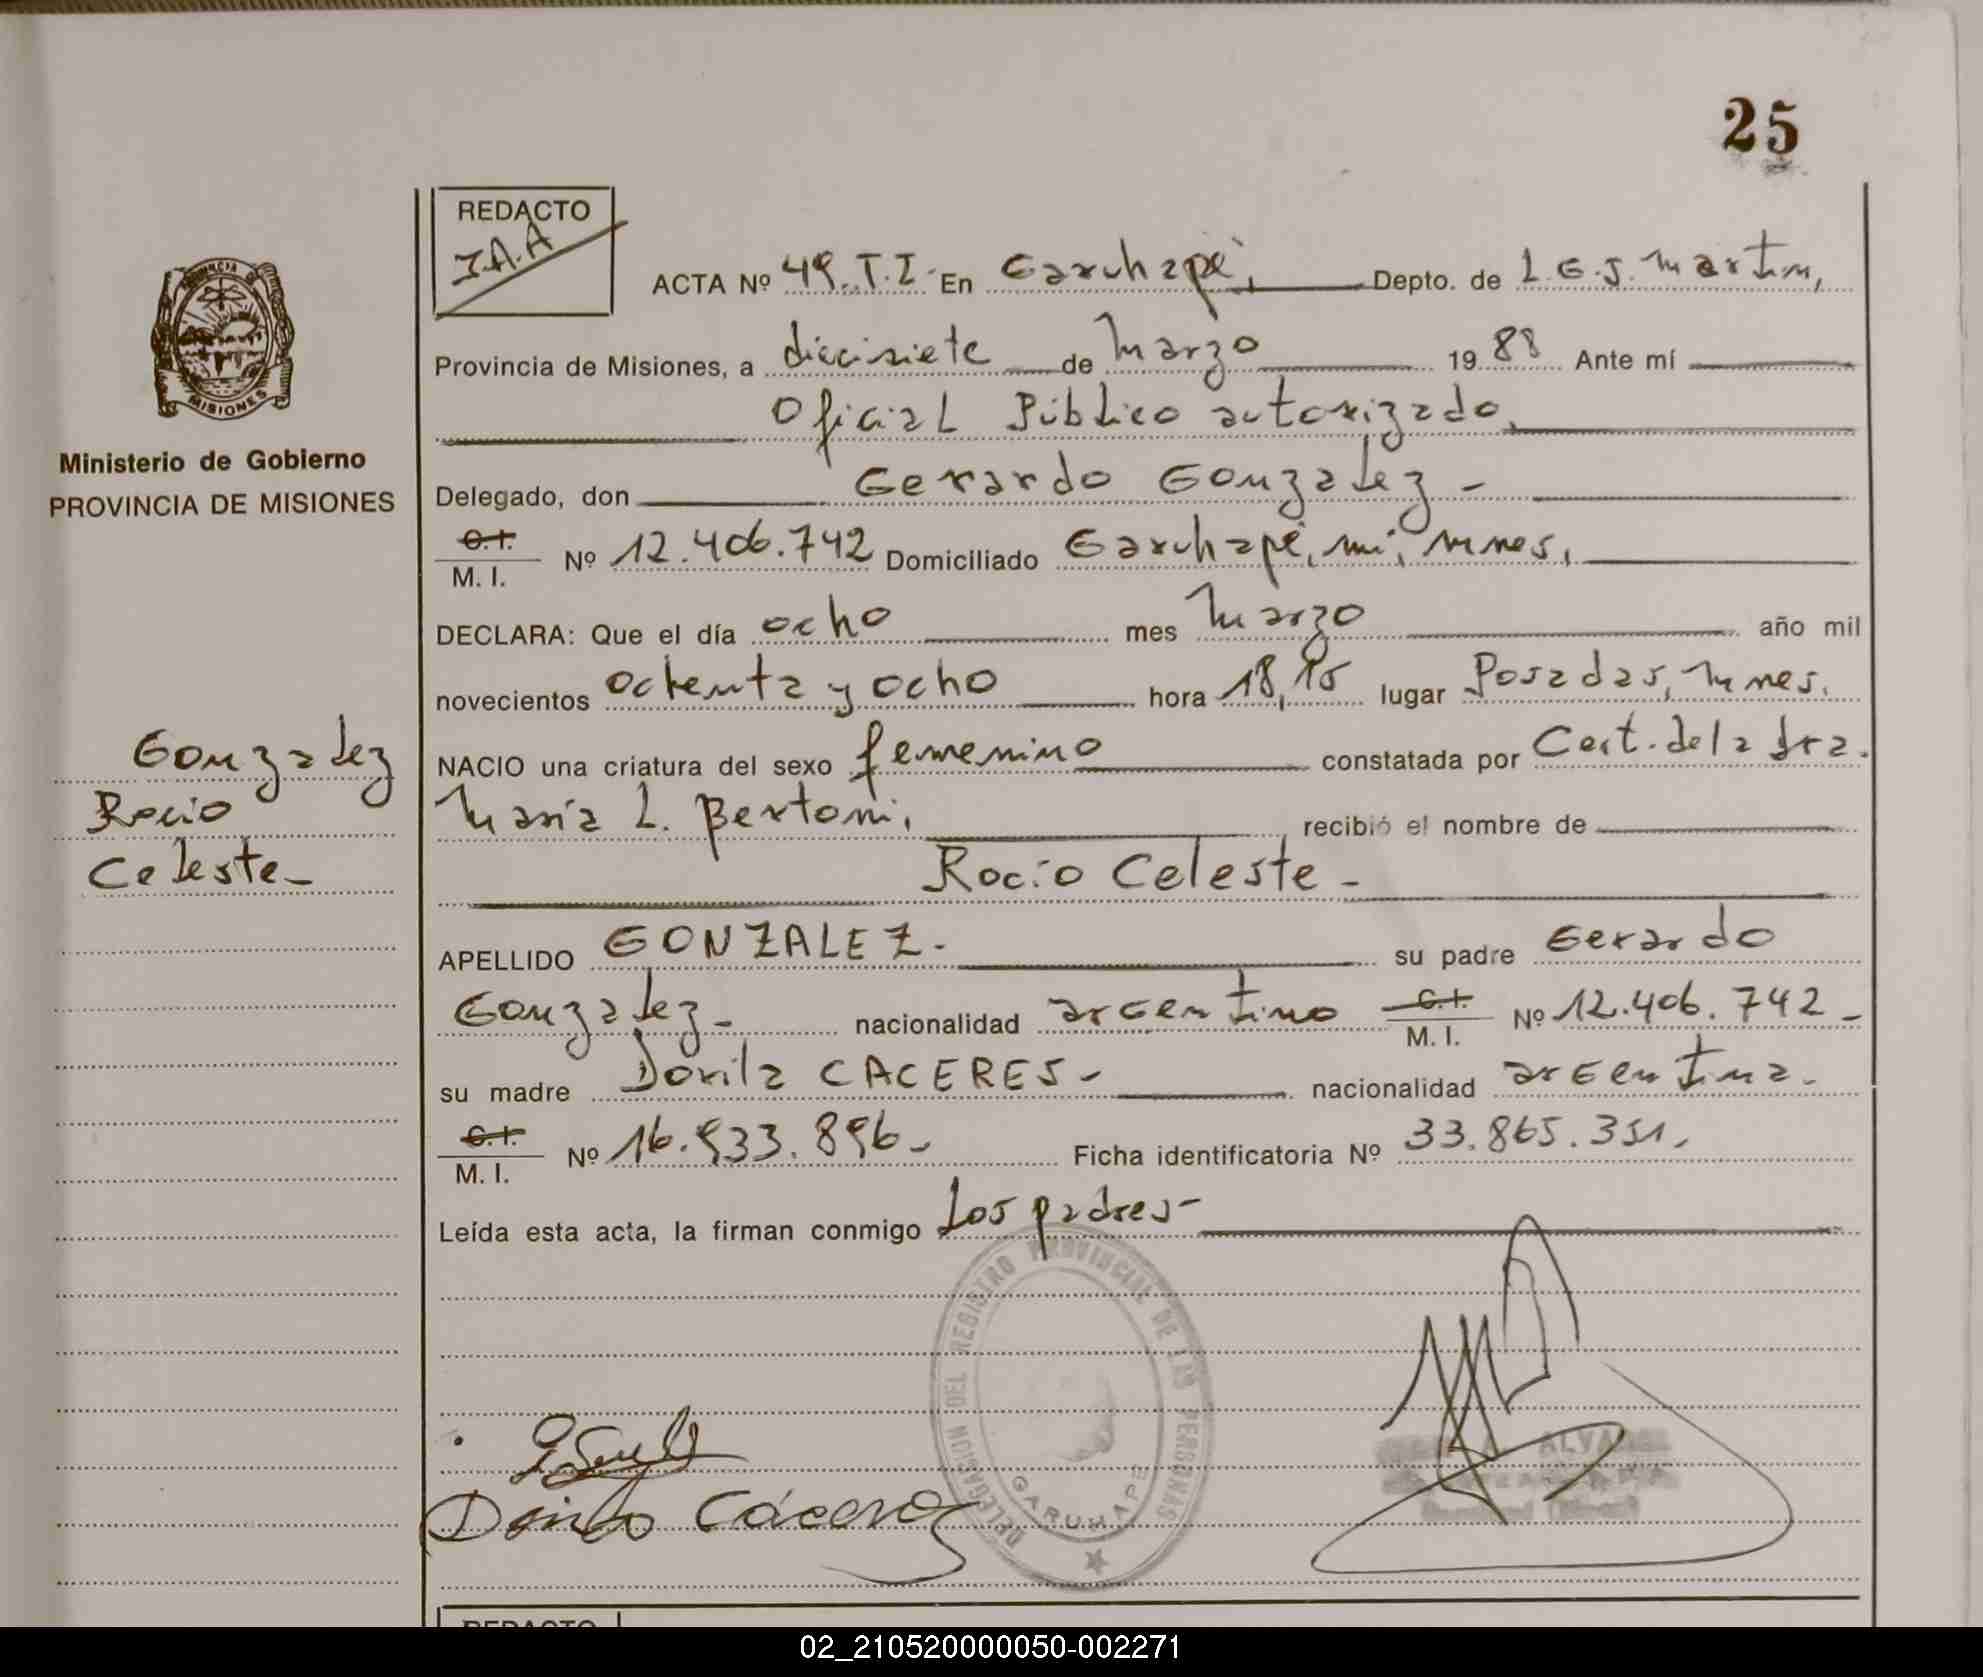 25
REDACTO
I.A.A
ACTA Nº 49. T. I. En Garuhapé, Depto. de L. G. S. Martin,
Provincia de Misiones, a diecisiete de Marzo 1988 Ante mí
Oficial Público autorizado,
Delegado, don Gerardo Gonzalez -
C.I. / M. I. Nº 12.406.742 Domiciliado Garuhapé, mi, mnes,
DECLARA: Que el día ocho mes Marzo año mil
novecientos ochenta y ocho hora 18,15 lugar Posadas, Mnes.
NACIO una criatura del sexo femenino constatada por Cert. de la dra.
María L. Bertoni, recibió el nombre de
Rocio Celeste -
APELLIDO GONZALEZ. su padre Gerardo
Gonzalez - nacionalidad argentino C.I. / M. I. Nº 12.406.742 -
su madre Dorila CACERES - nacionalidad argentina.
C.I. / M. I. Nº 16.933.896 - Ficha identificatoria Nº 33.865.351,
Leída esta acta, la firman conmigo Los padres -
PROVINCIA DE
MISIONES
Ministerio de Gobierno
PROVINCIA DE MISIONES
Gonzalez
Rocio
Celeste -
DELEGACION DEL REGISTRO PROVINCIAL DE LAS PERSONAS
GARUHAPE
ALVAREZ
Cáceres
REDACTO
02_210520000050-002271